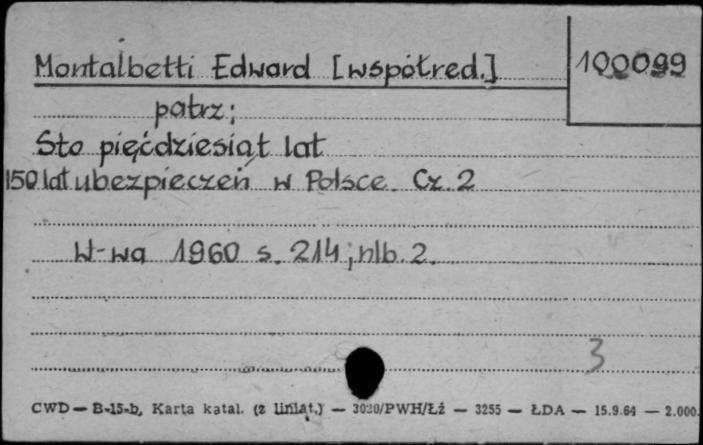 Montalbetti Edward [współred.] 100099
patrz;
Sto pięćdziesiąt lat
150 lat ubezpieczeń w Polsce. Cz. 2
W-wa 1960 s. 214; nlb. 2.
3
CWD — B-15-b, Karta katal. (z liniat.) — 3020/PWH/Łź — 3255 — ŁDA — 15.9.64 — 2.000.